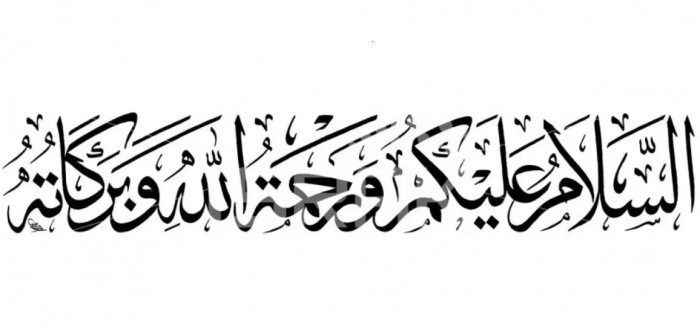 السَّلَامُ عَلَيْكُمْ وَرَحْمَةُ اللهِ وَبَرَكَاتُهُ